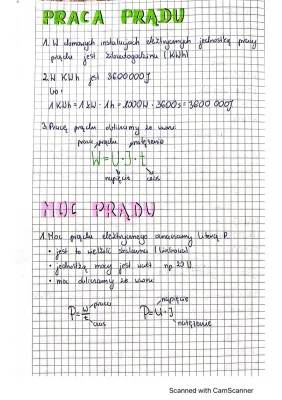 PRACA PRĄDU
1. W domowych instalacjach elektrycznych jednostką pracy
prądu jest kilowatogodzina (kWh)
2. W KWh jest 3600000J
bo:
1 KWh = 1kW · 1h = 1000W · 3600s = 3600 000J
3. Pracę prądu obliczamy ze wzoru:
praca prądu natężenie
W = U · J · t
napięcie czas
MOC PRĄDU
1. Moc prądu elektrycznego oznaczamy literą P.
• jest to wielkość
• jednostką mocy jest wat np 20 W.
• moc obliczamy ze wzoru
praca napięcie
P = W/t P = U · J
czas natężenie
Scanned with CamScanner